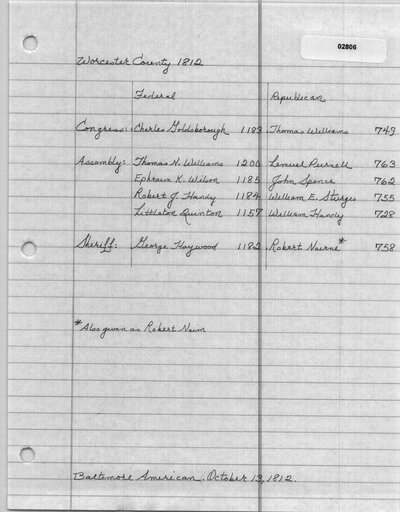 02806
Worcester County 1812
Federal Republican
Congress: Charles Goldsborough 1183 Thomas Williams 749
Assembly: Thomas N. Williams 1200 Lemuel Purnell 763
Ephraim K. Wilson 1185 John Spence 762
Robert J. Handy 1184 William E. Sturges 755
Littleton Quinton 1157 William Handy 728
Sheriff: George Haywood 1182 Robert Nairne* 758
*Also given as Robert Nairn
Baltimore American, October 13, 1812.